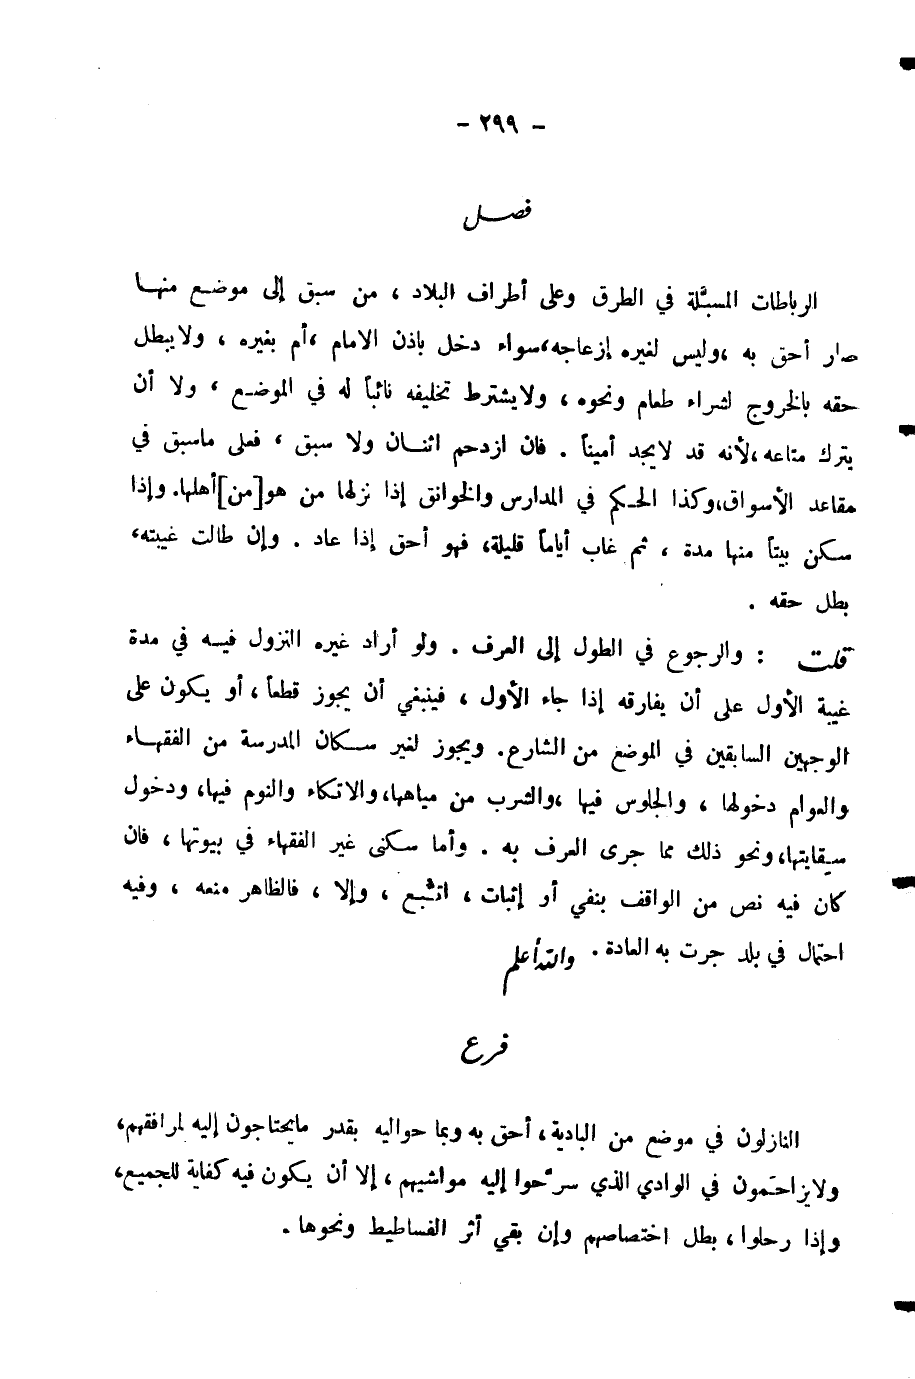 - ٢٩٩ -
فصل
الرباطات المسبَّلة في الطرق وعلى أطراف البلاد ، من سبق إلى موضع منها
صار أحق به ،وليس لغيره إزعاجه،سواء دخل باذن الامام ،أم بغيره ، ولايبطل
حقه بالخروج لشراء طعام ونحوه ، ولايشترط تخليفه نائباً له في الموضع ، ولا أن
يترك متاعه،لأنه قد لايجد أميناً . فان ازدحم اثنان ولا سبق ، فعلى ماسبق في
مقاعد الأسواق،وكذا الحكم في المدارس والخوانق إذا نزلها من هو[من]أهلها.وإذا
سكن بيتاً منها مدة ، ثم غاب أياماً قليلة، فهو أحق إذا عاد . وإن طالت غيبته،
بطل حقه .
قلت : والرجوع في الطول إلى العرف . ولو أراد غيره النزول فيه في مدة
غيبة الأول على أن يفارقه إذا جاء الأول ، فينبغي أن يجوز قطعاً ، أو يكون على
الوجهين السابقين في الموضع من الشارع. ويجوز لغير سكان المدرسة من الفقهاء
والعوام دخولها ، والجلوس فيها ،والشرب من مياهها،والاتكاء والنوم فيها، ودخول
سقايتها،ونحو ذلك مما جرى العرف به . وأما سكنى غير الفقهاء في بيوتها ، فان
كان فيه نص من الواقف بنفي أو إثبات ، اتُّبع ، وإلا ، فالظاهر منعه ، وفيه
احتمال في بلد جرت به العادة . والله أعلم
فرع
النازلون في موضع من البادية، أحق به وبما حواليه بقدر مايحتاجون إليه لمرافقهم،
ولايزاحَمون في الوادي الذي سرَّحوا إليه مواشيهم ، إلا أن يكون فيه كفاية للجميع،
وإذا رحلوا ، بطل اختصاصهم وإن بقي أثر الفساطيط ونحوها .